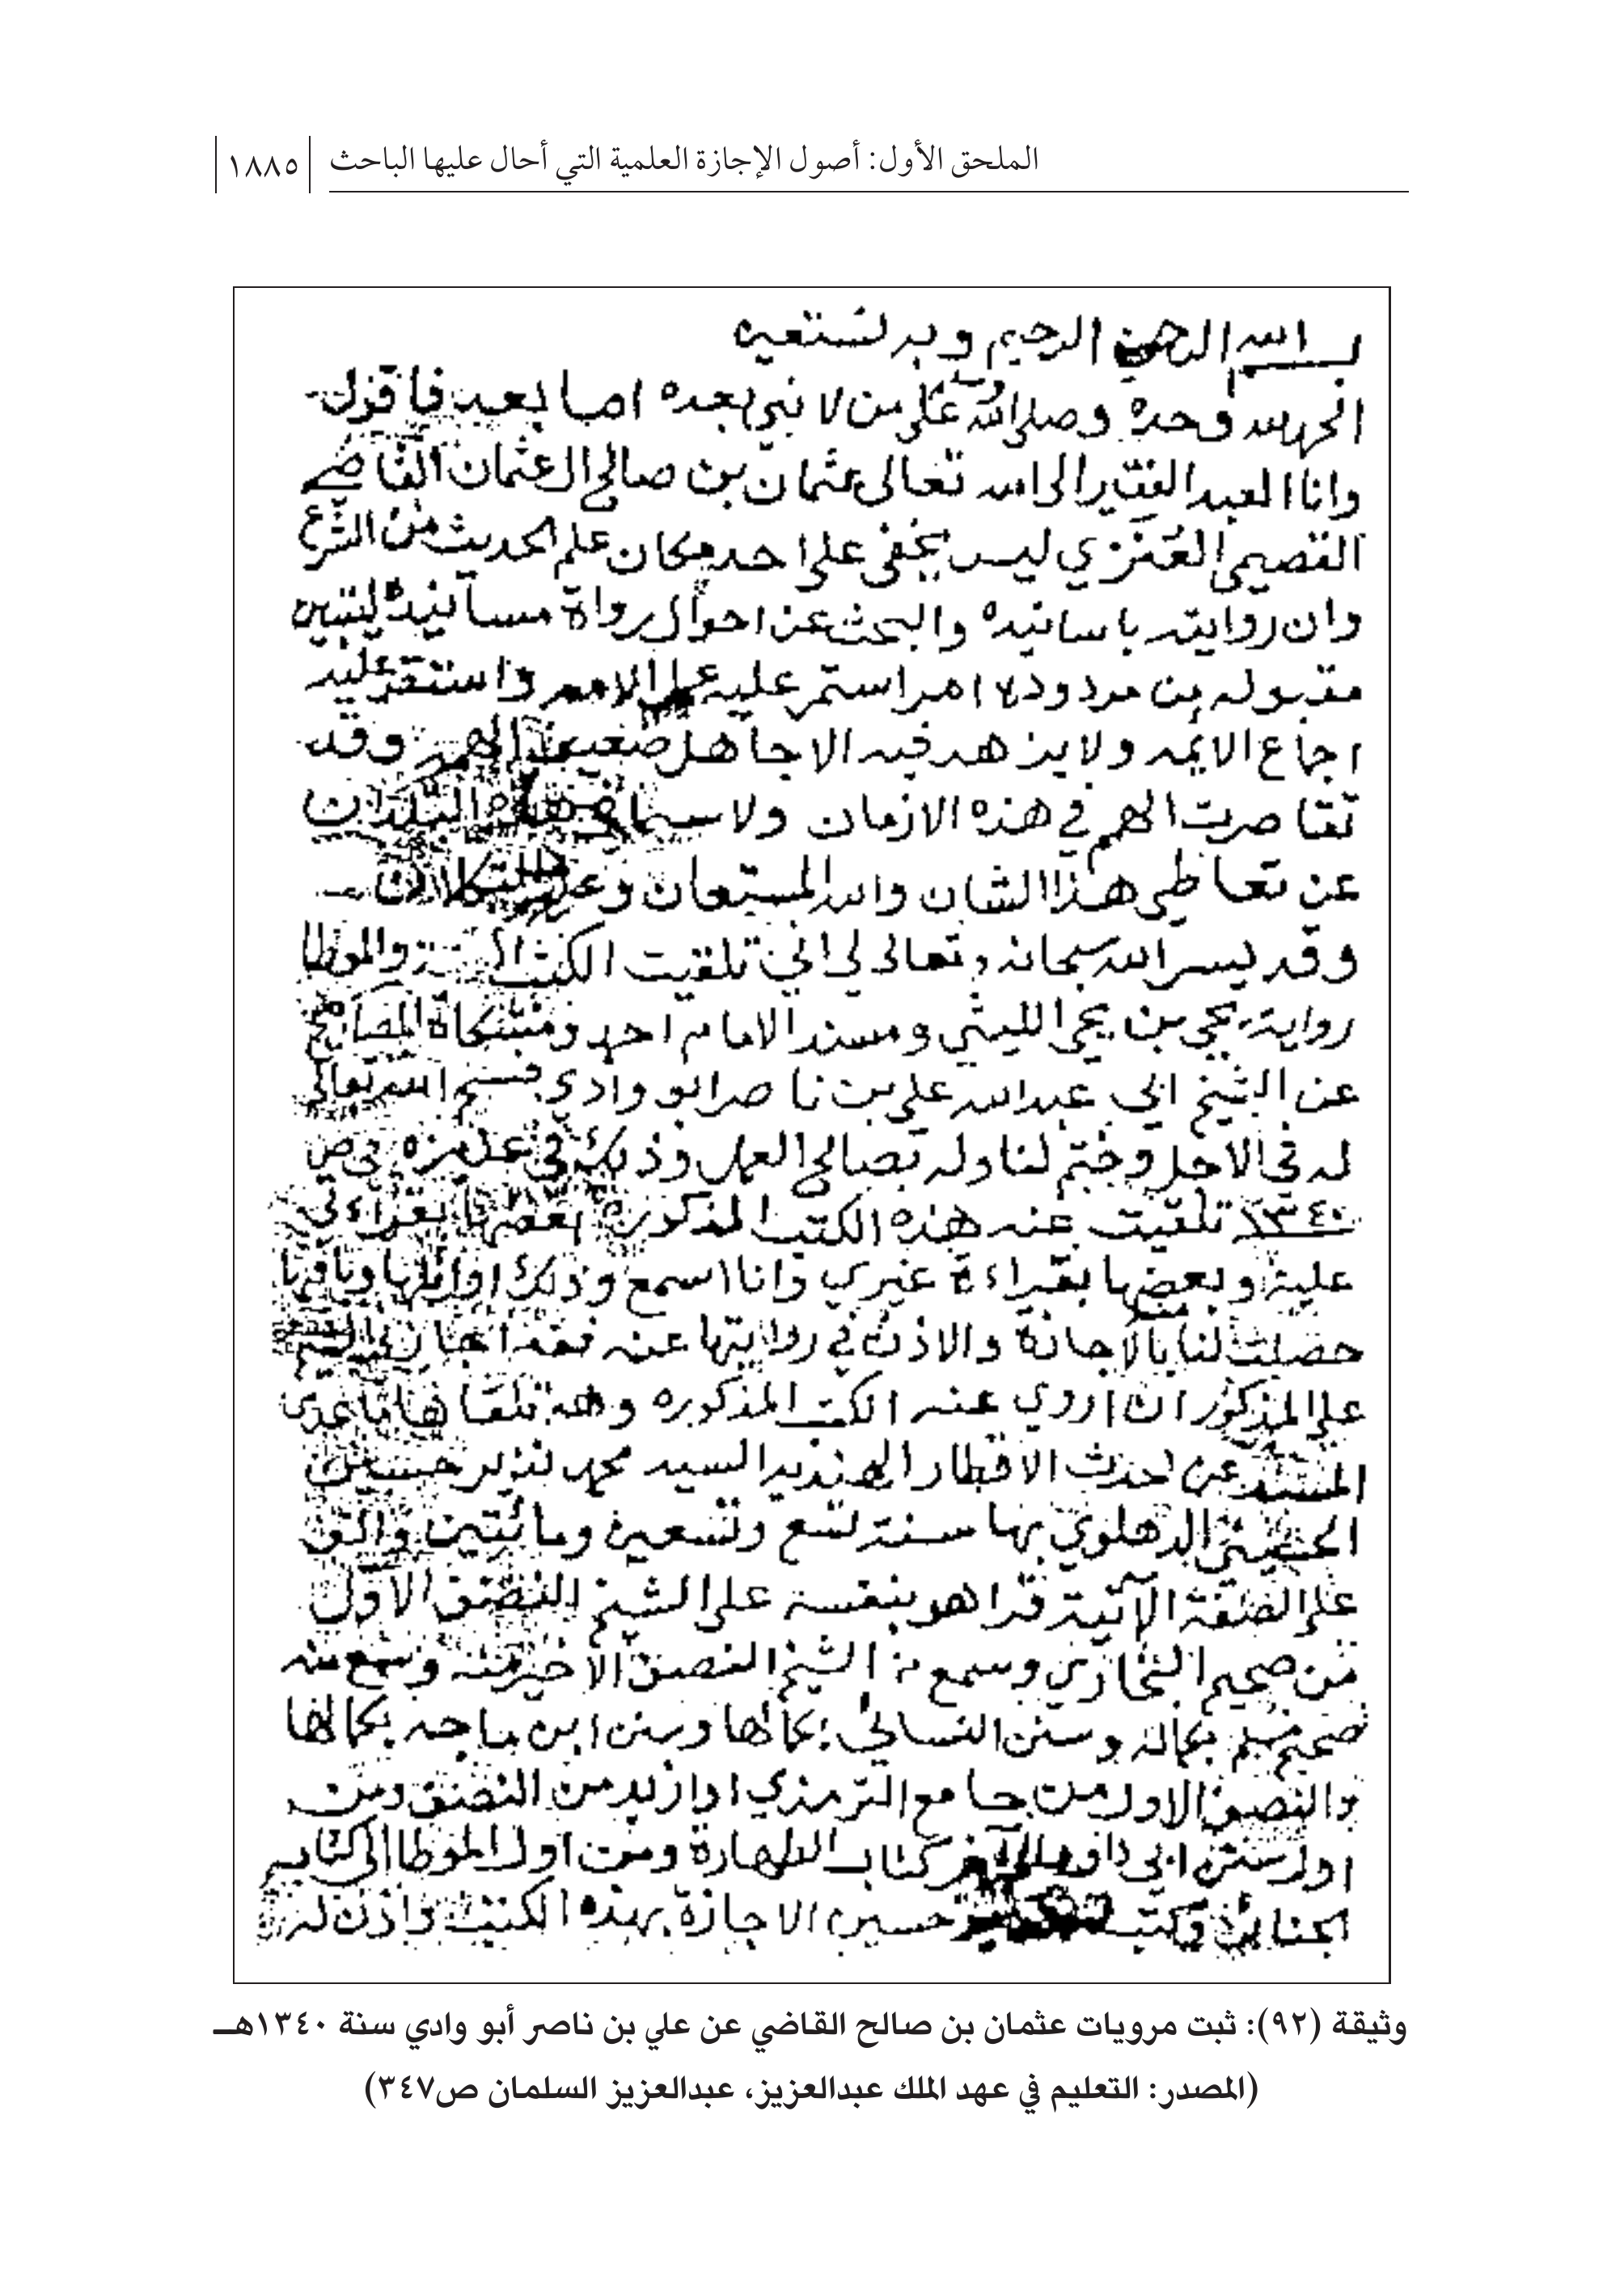 الملحق الأول: أصول الإجازة العلمية التي أحال عليها الباحث ١٨٨٥
بسم الله الرحمن الرحيم وبه نستعين
الحمد لله وحده وصلى الله وسلم على من لا نبي بعده اما بعد فاقول
وانا العبد الفقير الى الله تعالى عثمان بن صالح ال عثمان القاضي
القصيمي العنزي ليس يخفى على احد مكان علم الحديث من الشرع
وان روايته باسانيده والبحث عن احوال رواة مسانيده ليتبين
مقبوله من مردوده امر استمر عليه واستقر عليه
اجماع الايمه ولا يزهد فيه الا جاهل ضعيف وقد
تقاصرت الهمم في هذه الازمان ولا سيما في هذه البلدان
عن تعاطي هذا الشان والله المستعان وعليه التكلان
وقد يسر الله سبحانه وتعالى لي اني تلقيت الكتب الستة والموطا
رواية يحي بن يحي الليثي ومسند الامام احمد ومشكاة المصابيح
عن الشيخ ابي عبد الله علي بن ناصر ابو وادي فسح الله تعالى
له في الاجل وختم لنا وله بصالح العمل وذلك في عنيزه في ص
١٣٤٠ تلقيت عنه هذه الكتب المذكورة بعضها بقراءتي
عليه وبعضها بقراءة غيري وانا اسمع وذلك اوائلها وباقيها
حصلت لنا بالاجازة والاذن في روايتها عنه فقد اجازني الشيخ
علي المذكور ان اروي عنه الكتب المذكوره وهو تلقاها ما عدى
المسند عن محدث الاقطار الهنديه السيد محمد نذير حسين
الحسيني الدهلوي بها سنة تسع وتسعين ومائتين والف
على الصفة الآتية قرا هو بنفسه على الشيخ النصف الاول
من صحيح البخاري وسمع من الشيخ النصف الاخير منه وسمع منه
صحيح مسلم بكماله وسنن النسائي بكمالها وسنن ابن ماجه بكمالها
والنصف الاول من جامع الترمذي او ازيد من النصف ومن
اول سنن ابي داود الى آخر كتاب الطهارة ومن اول الموطا الى كتاب
الجنايز وكتب حسين الاجازة بهذه الكتب واذن له
وثيقة (٩٢): ثبت مرويات عثمان بن صالح القاضي عن علي بن ناصر أبو وادي سنة ١٣٤٠هـ
(المصدر: التعليم في عهد الملك عبدالعزيز، عبدالعزيز السلمان ص٣٤٧)